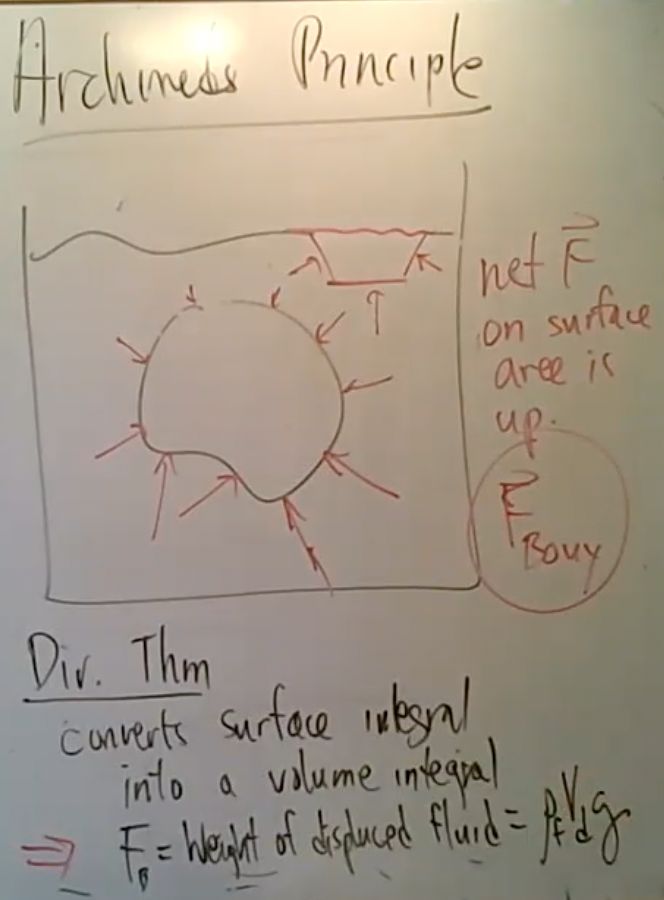 Archimeds Principle
net F⃗
on surface
area is
up.
F⃗ Bouy
Div. Thm
converts surface integral
into a volume integral
⇒ F_B = Weight of displaced fluid = ρ_f V_d g